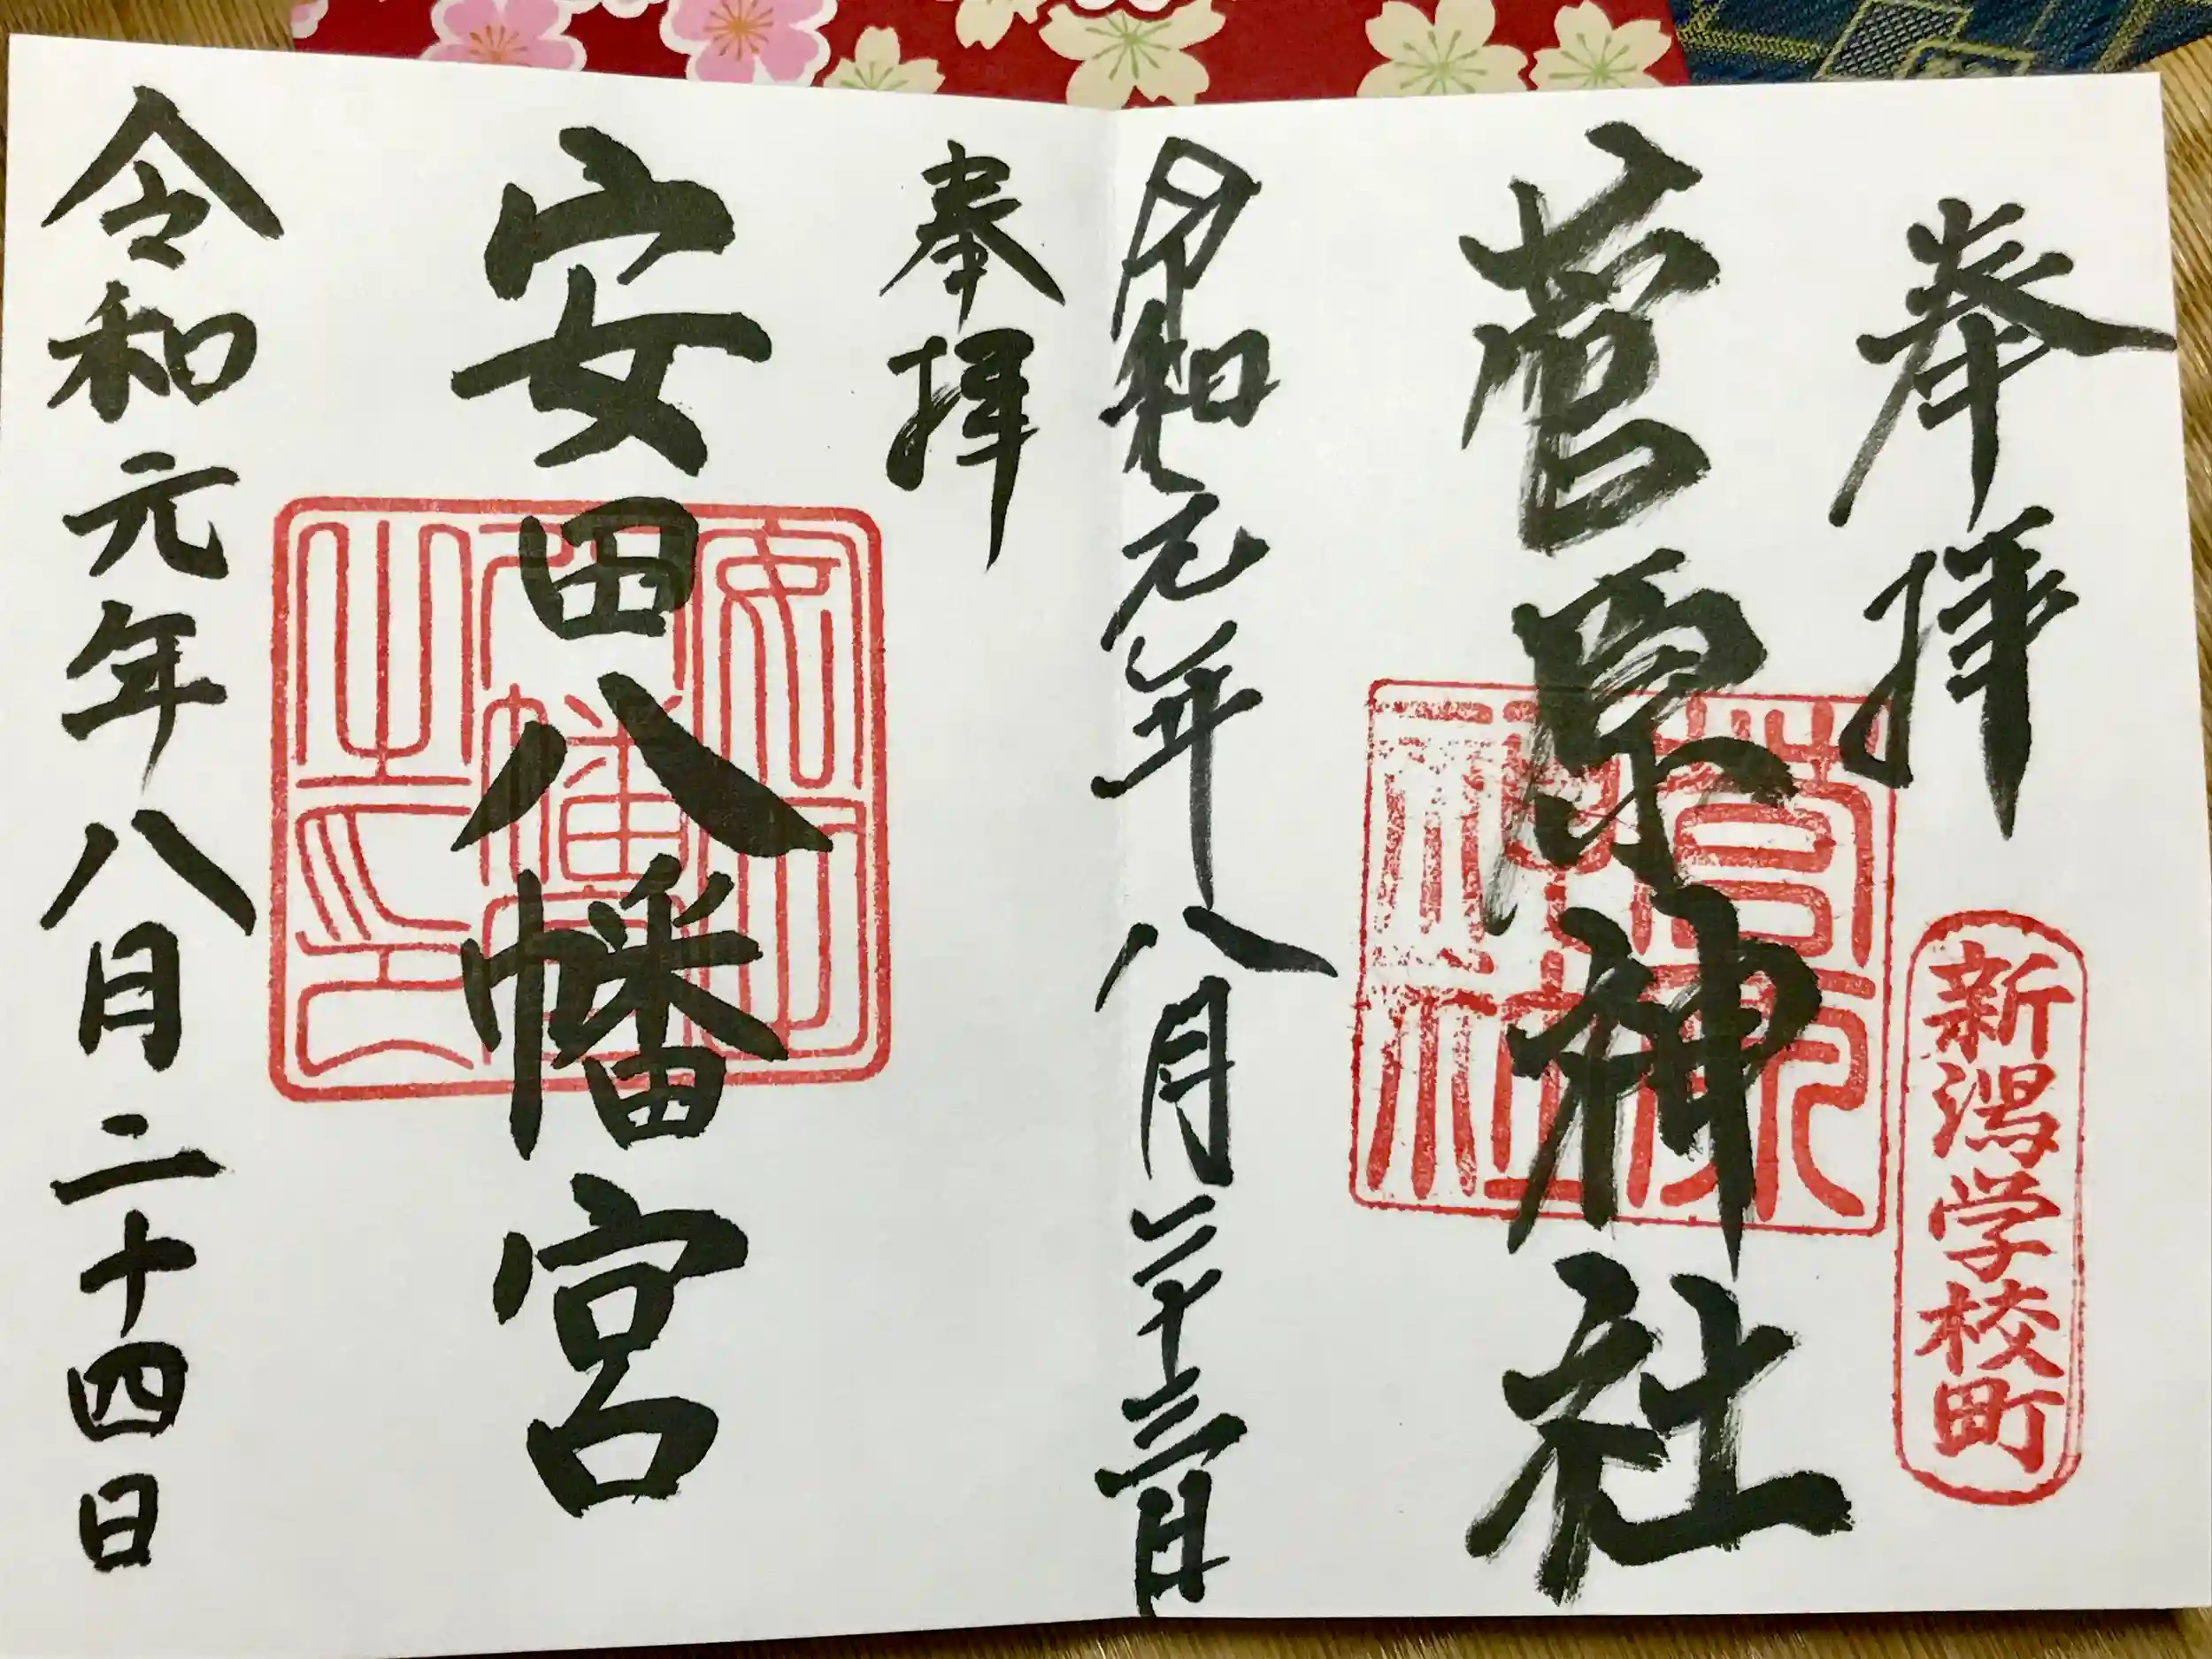 奉拝
新潟学校町
菅原神社
菅原神社
令和元年八月二十三日
奉拝
安田八幡宮
令和元年八月二十四日